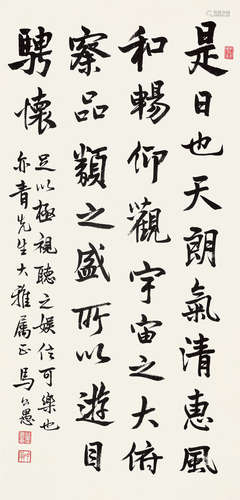 是日也天朗氣清惠風
和暢仰觀宇宙之大俯
察品類之盛所以遊目
騁懷
足以極視聽之娛信可樂也
亦青先生大雅屬正馬公愚